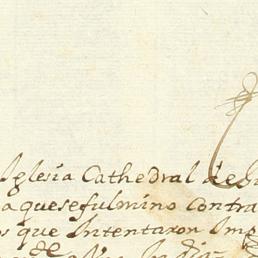 Iglesia Cathedral de
a que se fulmino contra
os que Intentaron Imp